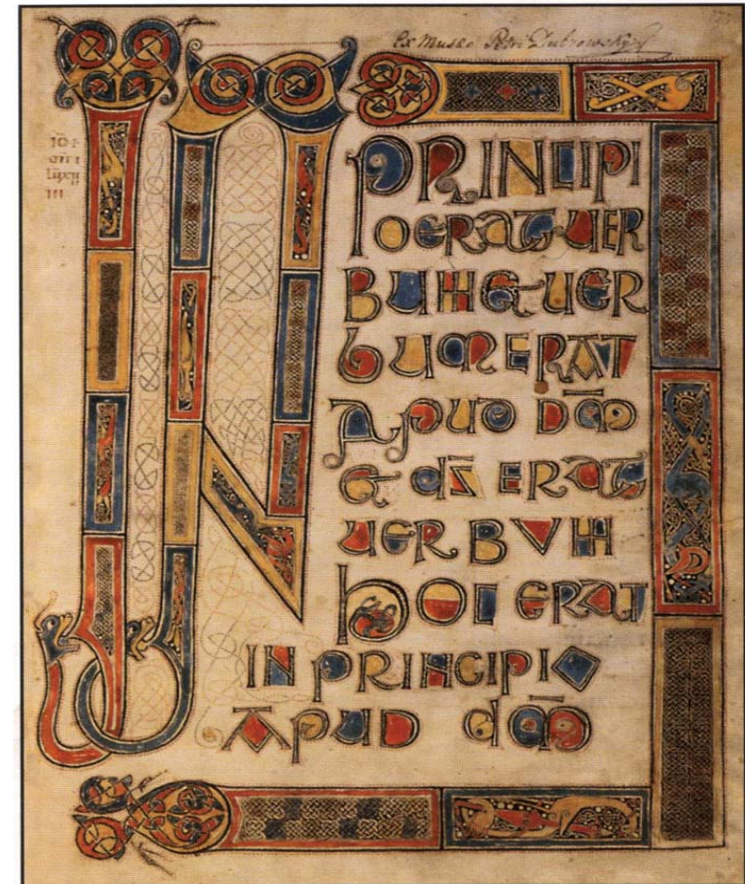 Ex Museo Petri Dubrowsky
IN PRINCIPI
O ERAT UER
BUM ET UER
BUM ERAT
APUD D̄M̄
ET D̄S̄ ERAT
UERBVM
HOC ERAT
IN PRINCIPIO
APUD D̄M̄